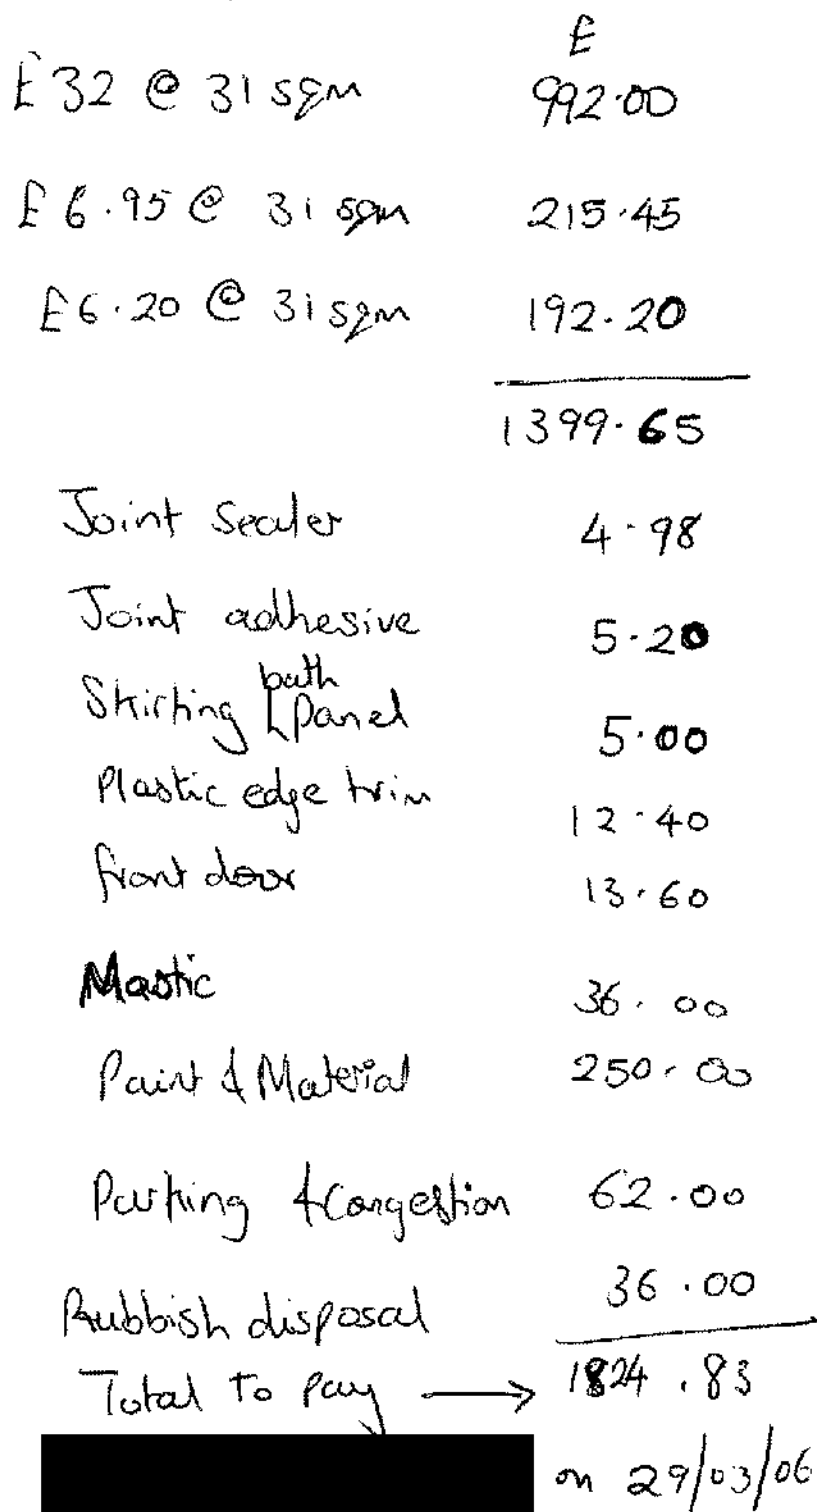 £
£32 @ 31 sqm 992.00
£6.95 @ 31 sqm 215.45
£6.20 @ 31 sqm 192.20
1399.65
Joint Sealer 4.98
Joint adhesive 5.20
Skirting bath Panel 5.00
Plastic edge trim 12.40
front door 13.60
Mastic 36.00
Paint & Material 250.00
Parking & Congestion 62.00
Rubbish disposal 36.00
Total to pay → 1824.83
on 29/03/06